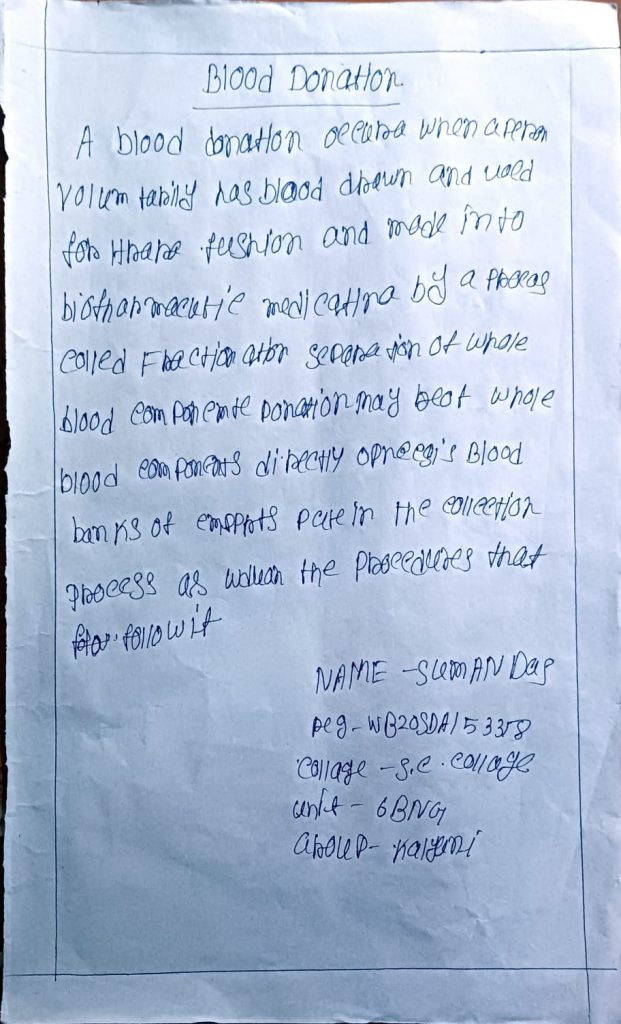 Blood Donation
A blood donation occura when a person
Volum tarily has blood drawn and used
for Hrara fushion and made into
biofharmacutic medicatina by a Proces
called Fraction ation separa tion of whole
blood componemte Donation may beof whole
blood components directly Blood
banks of Pate in the collection
process as the Procedures that
followit
NAME - SUMAN Das
Reg - WB20SDA153358
Collage - S.C. collage
unit - 6BNG
Group - Kalyani